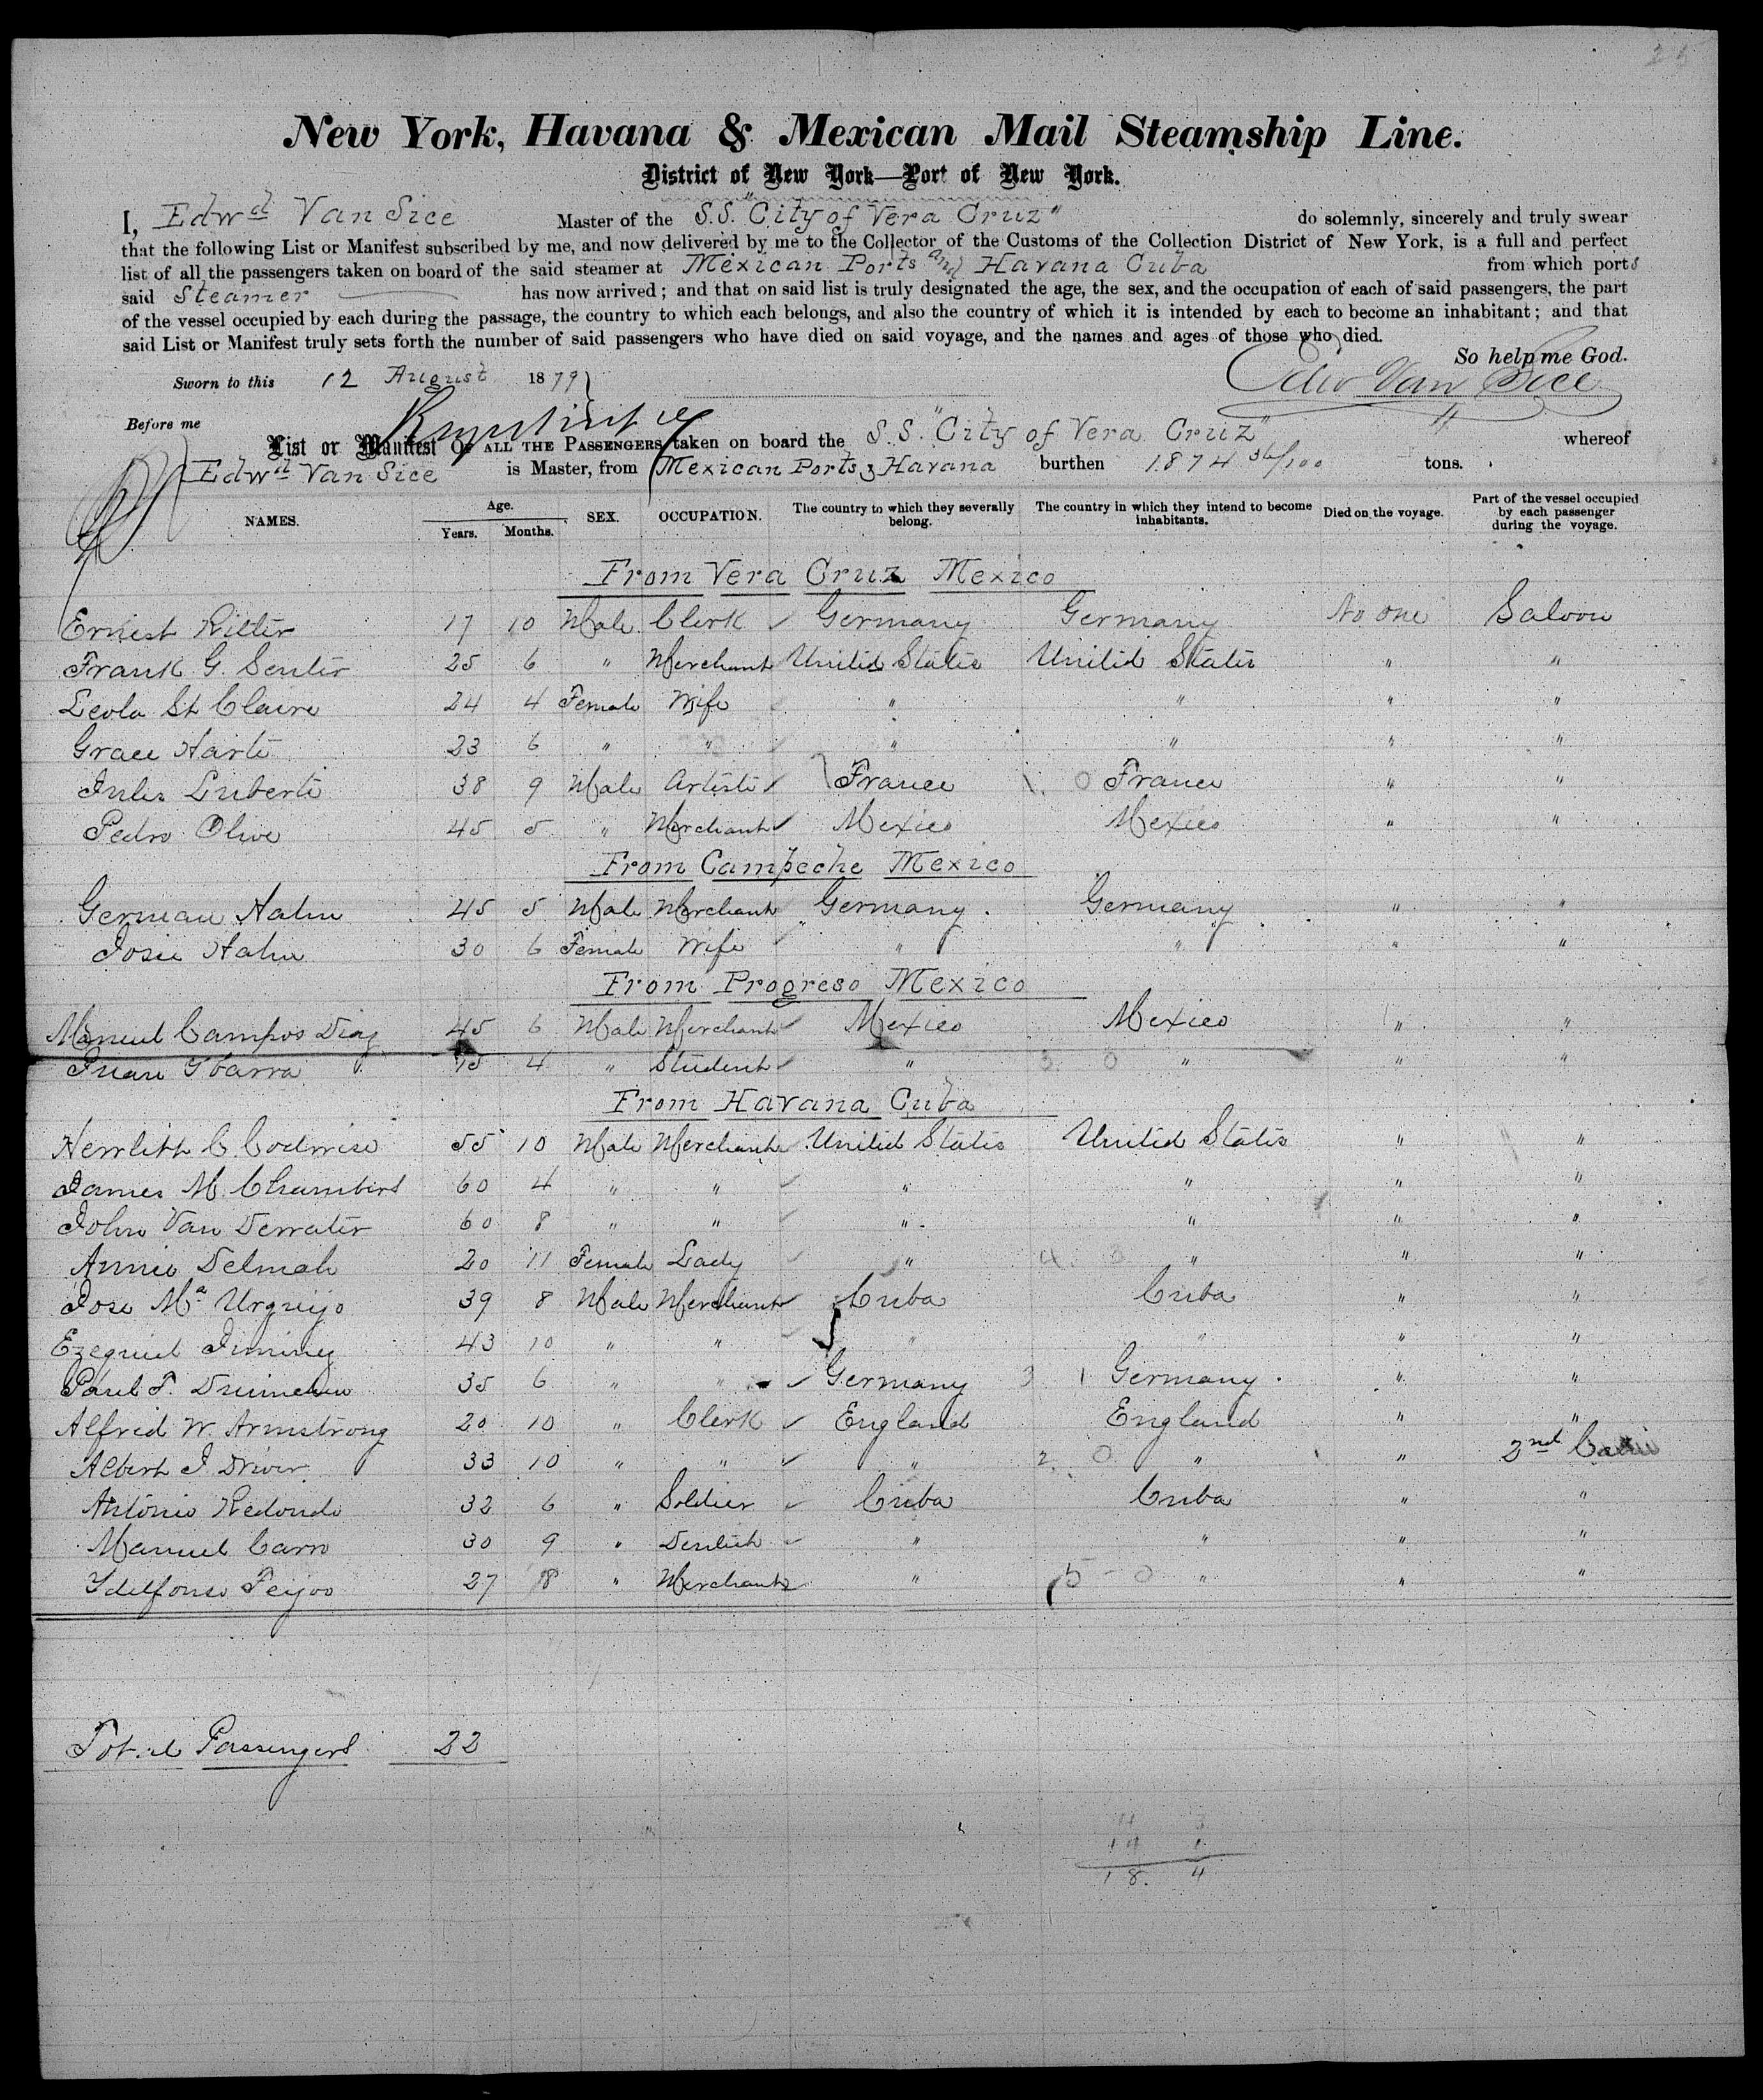 New York, Havana & Mexican Mail Steamship Line.
District of New York—Port of New York.
I, Edwd Van Sice Master of the S.S. "City of Vera Cruz" do solemnly, sincerely and truly swear
that the following List or Manifest subscribed by me, and now delivered by me to the Collector of the Customs of the Collection District of New York, is a full and perfect
list of all the passengers taken on board of the said steamer at Mexican Ports and Havana Cuba from which ports
said Steamer has now arrived; and that on said list is truly designated the age, the sex, and the occupation of each of said passengers, the part
of the vessel occupied by each during the passage, the country to which each belongs, and also the country of which it is intended by each to become an inhabitant; and that
said List or Manifest truly sets forth the number of said passengers who have died on said voyage, and the names and ages of those who died.
So help me God.
Sworn to this 12 August 1879 Edw Van Sice
Before me
List or Manifest OF ALL THE PASSENGERS taken on board the S.S. "City of Vera Cruz" whereof
Edwd Van Sice is Master, from Mexican Ports & Havana burthen 1874 36/100 tons.
NAMES. Age. Years. Months. SEX. OCCUPATION. The country to which they severally belong. The country in which they intend to become inhabitants. Died on the voyage. Part of the vessel occupied by each passenger during the voyage.
From Vera Cruz Mexico
Ernest Ritter 17 10 Male Clerk Germany Germany No one Saloon
Frank G. Senter 25 6 " Merchant United States United States " "
Leola St Claire 24 4 Female Wife " " " "
Grace Harte 23 6 " " " " " "
Jules Luberti 38 9 Male Artiste France 1. 0 France " "
Pedro Olive 45 5 " Merchant Mexico Mexico " "
From Campeche Mexico
German Hahn 45 5 Male Merchant Germany Germany " "
Josie Hahn 30 6 Female Wife " " " "
From Progreso Mexico
Manuel Campos Diaz 45 6 Male Merchant Mexico Mexico " "
Juan Ybarra 4 " Student " 3. 0 " " "
From Havana Cuba
C. Codwise 55 10 Male Merchant United States United States " "
James M. Chambers 60 4 " " " " " "
John Van Derrater 60 8 " " " " " "
Annie Delmah 20 11 Female Lady " 4. 3 " " "
Jose Ma Urquijo 39 8 Male Merchant Cuba Cuba " "
Ezequiel Jiminez 43 10 " " " " " "
Paul F. 35 6 " " Germany 3 1 Germany " "
Alfred W. Armstrong 20 10 " Clerk England England " "
Albert J. Driver 33 10 " " " 2. 0 " " 2nd Cabin
Antonio Redondo 32 6 " Soldier Cuba Cuba " "
Manuel Carro 30 9 " Dentist " " " "
Ydelfonso Feijoo 27 8 " Merchant " 5 - 0 " " "
Total Passengers 22
4 3
14 1
18. 4